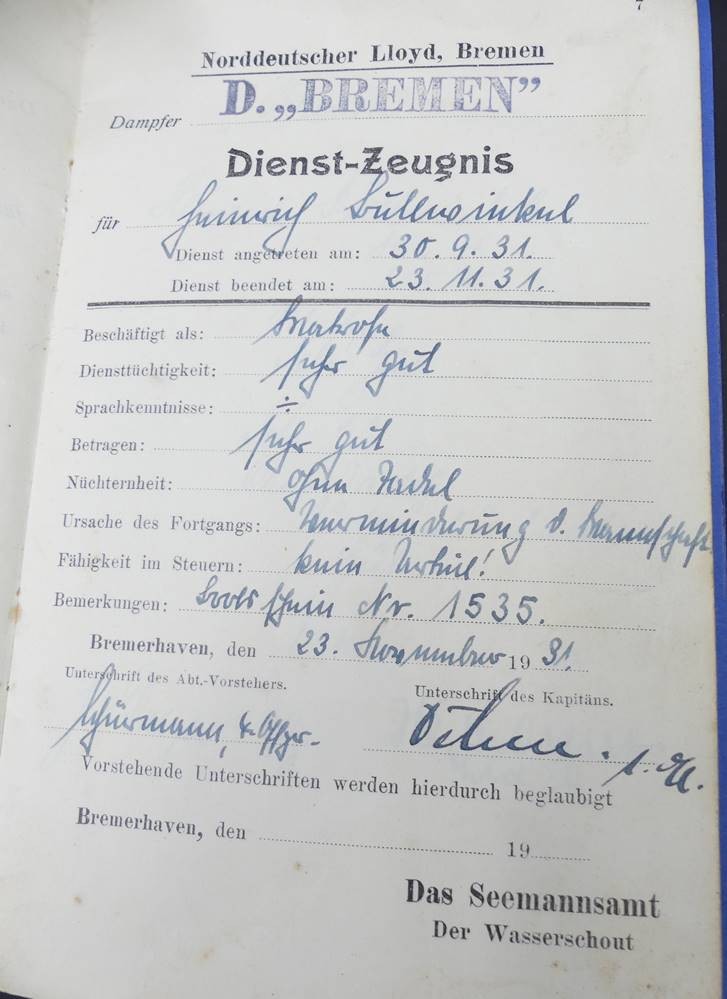 7
Norddeutscher Lloyd, Bremen
Dampfer D. „BREMEN”
Dienst-Zeugnis
für Heinrich Bullwinkel
Dienst angetreten am: 30.9.31.
Dienst beendet am: 23.11.31.
Beschäftigt als: Matrose
Diensttüchtigkeit: sehr gut
Sprachkenntnisse: ÷
Betragen: sehr gut
Nüchternheit: ohne Tadel
Ursache des Fortgangs: Verminderung d. Mannschaft
Fähigkeit im Steuern: kein Urteil!
Bemerkungen: Bootsschein Nr. 1535.
Bremerhaven, den 23. November 1931.
Unterschrift des Abt.-Vorstehers. Unterschrift des Kapitäns.
Schürmann, 4. Offzr.
Vorstehende Unterschriften werden hierdurch beglaubigt
Bremerhaven, den 19
Das Seemannsamt
Der Wasserschout